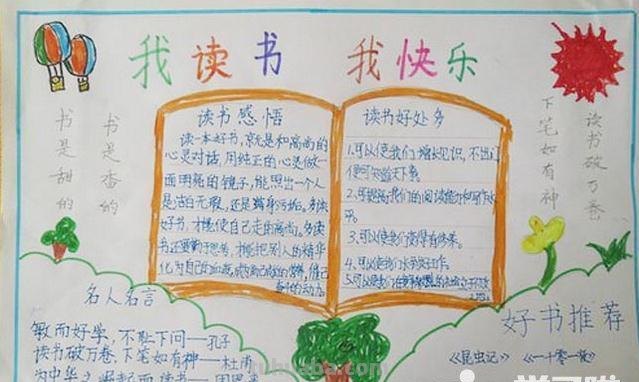 我读书 我快乐
书是香的
书是甜的
读书破万卷
下笔如有神
读书感悟
读一本好书,就是和高尚的
心灵对话,用纯正的心灵做一
面明亮的镜子,能照出一个人
是洁白无瑕,还是
好书,才能使自己走向高尚。多读
书还要勤于思考,才能把别人的精华
化为自己的血液,
奋斗的动力。
读书好处多
1.可以使我们增长见识,不出门
便可知道天下事。
2.可提高我们的阅读能力和写作水
平。
3.可以使我们变得有修养。
4.可以使我们
5.可以使我们
名人名言
敏而好学,不耻下问——孔子
读书破万卷,下笔如有神——杜甫
为中华之崛起而读书——周恩来
好书推荐
《昆虫记》 《一千零一夜》
tuhuaba.com